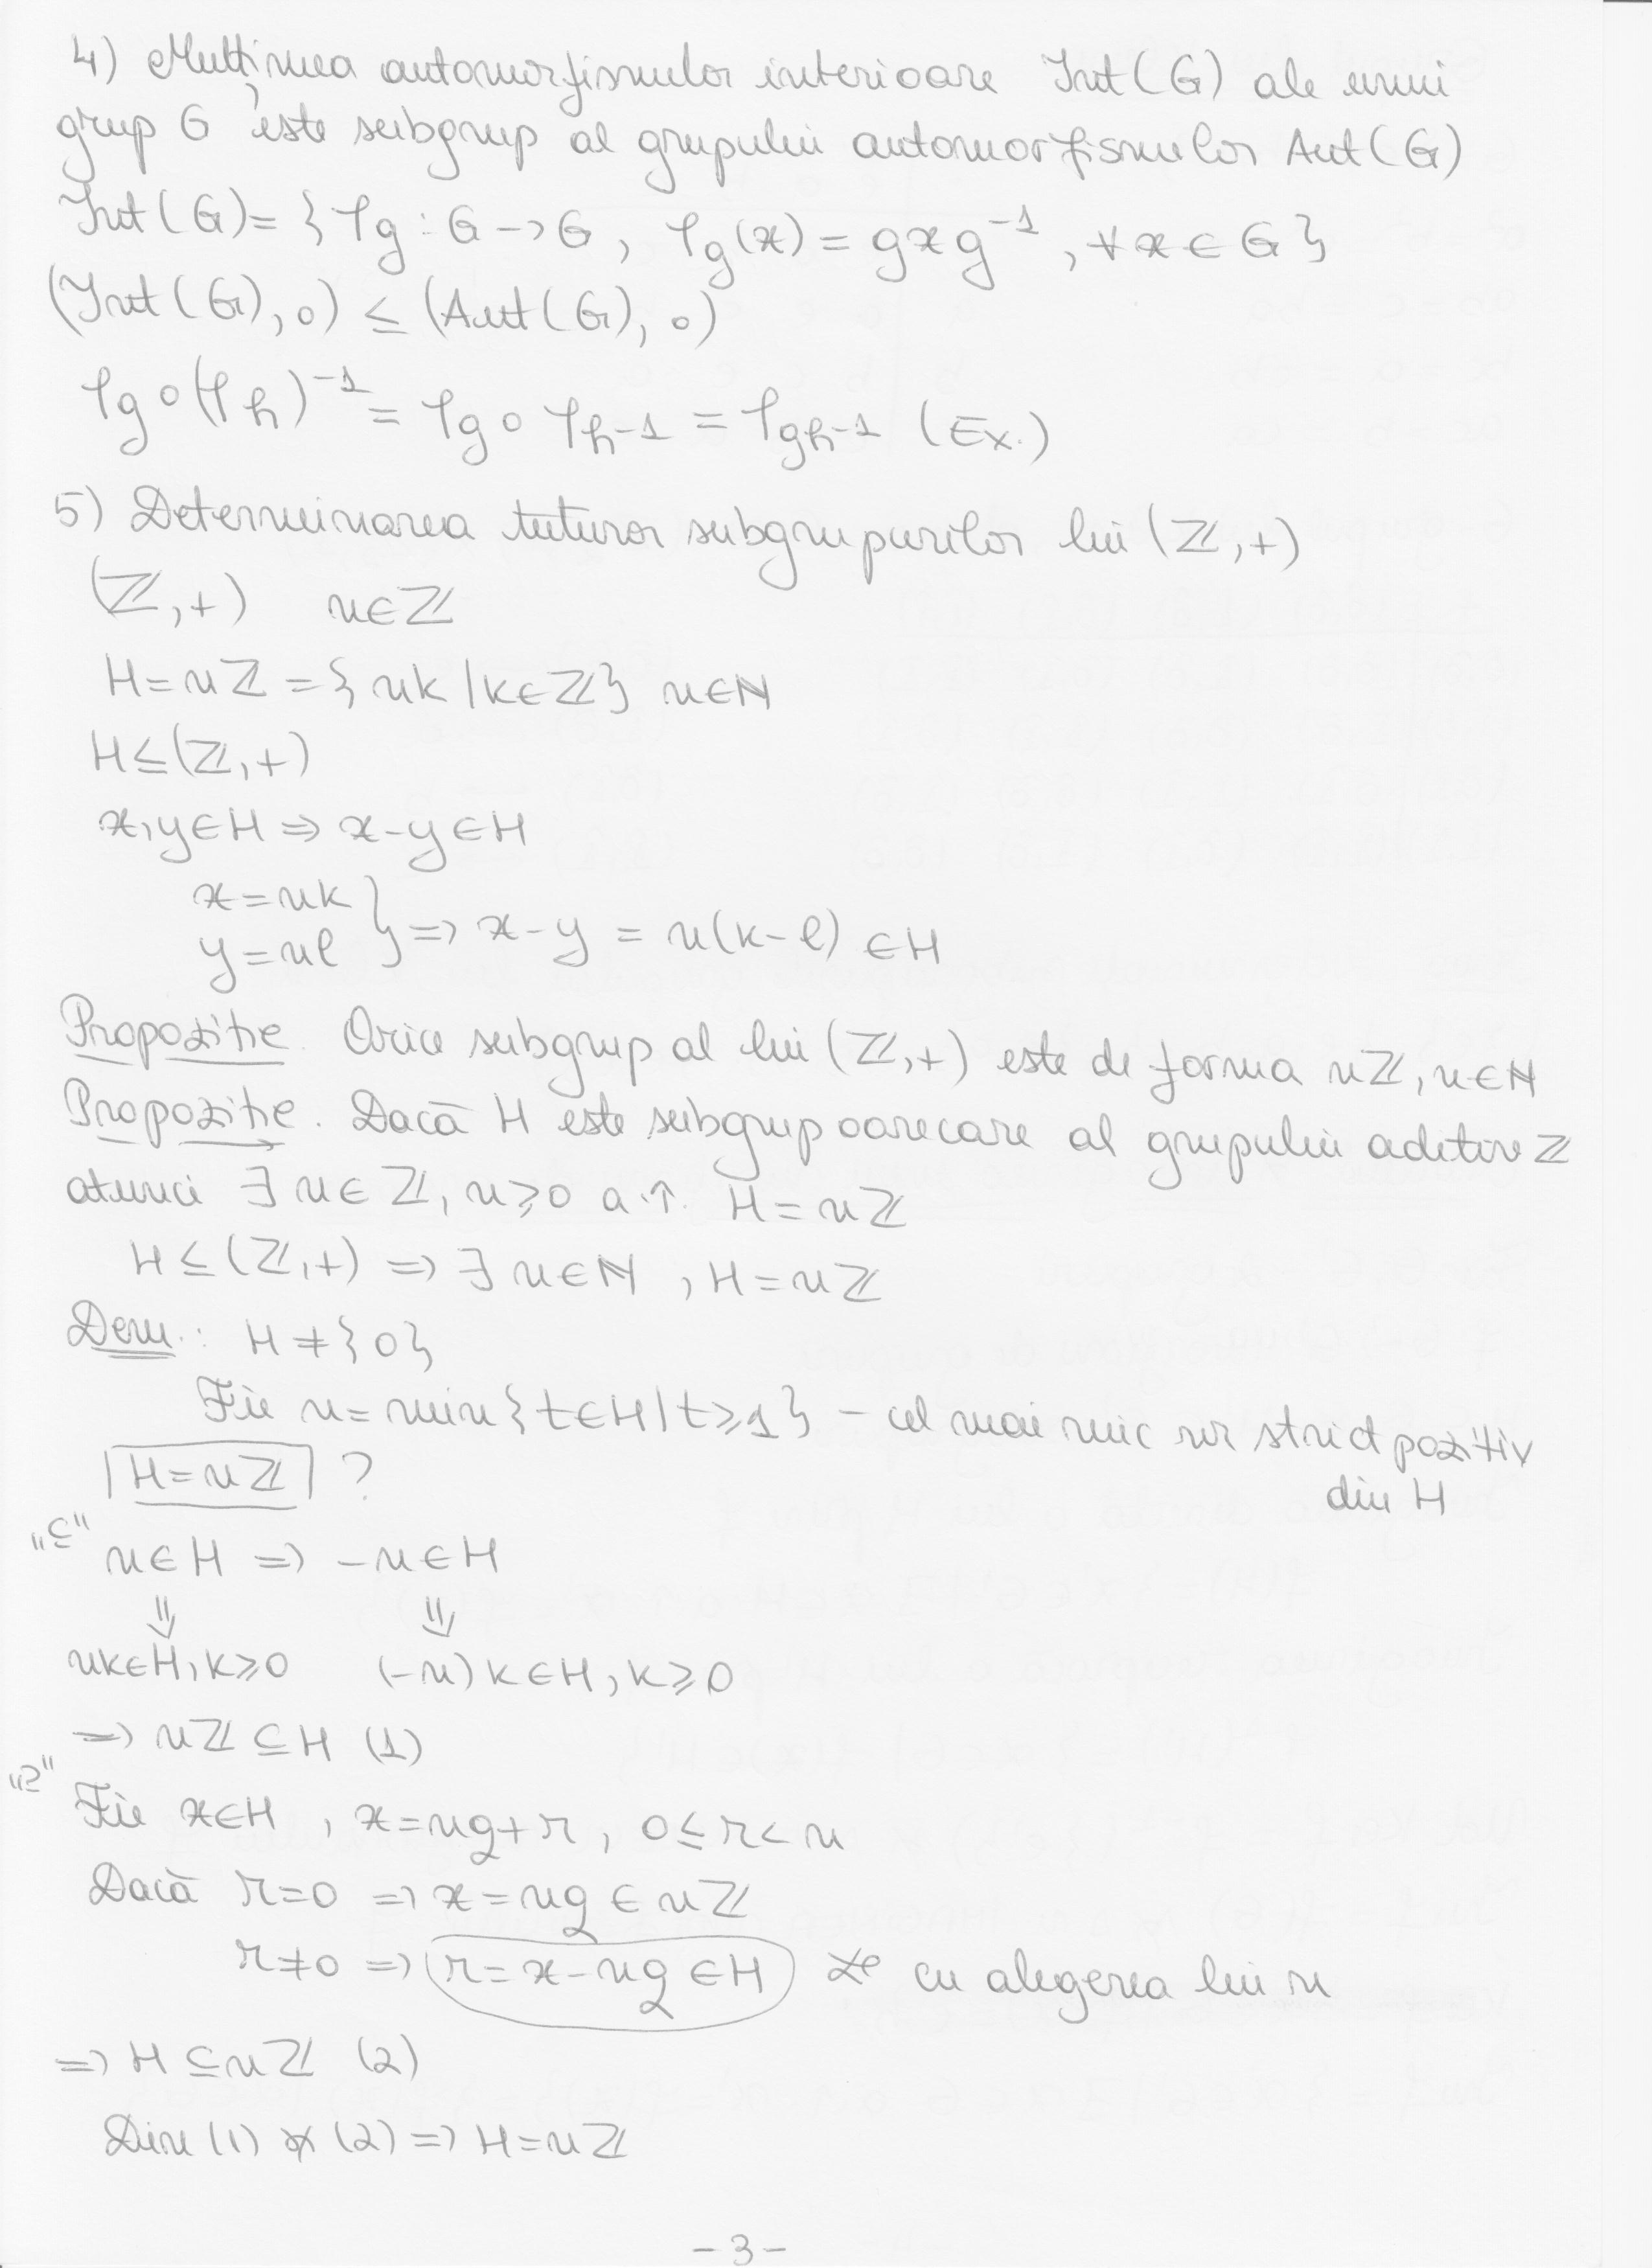 4) Mulțimea automorfismelor interioare Int(G) ale unui
grup G este subgrup al grupului automorfismelor Aut(G)
Int(G) = { φg : G -> G , φg(x) = gxg⁻¹ , ∀ x ∈ G }
(Int(G), ∘) ≤ (Aut(G), ∘)
φg ∘ (φh)⁻¹ = φg ∘ φh⁻¹ = φgh⁻¹ (Ex.)
5) Determinarea tuturor subgrupurilor lui (ℤ,+)
(ℤ,+) n∈ℤ
H = nℤ = { nk | k∈ℤ } n∈ℕ
H ≤ (ℤ,+)
x,y∈H => x-y∈H
x = nk
y = nl } => x-y = n(k-l) ∈ H
Propoziție. Orice subgrup al lui (ℤ,+) este de forma nℤ, n∈ℕ
Propoziție. Dacă H este subgrup oarecare al grupului aditiv ℤ
atunci ∃ n∈ℤ, n≥0 a.î. H = nℤ
H ≤ (ℤ,+) => ∃ n∈ℕ , H = nℤ
Dem.: H ≠ {0}
Fie n = min { t∈H | t≥1 } - cel mai mic nr strict pozitiv
din H
H = nℤ ?
"⊆" n∈H => -n∈H
⇓ ⇓
nk∈H, k≥0 (-n)k∈H, k≥0
=> nℤ ⊆ H (1)
"⊇"
Fie x∈H , x = nq+r , 0≤r<n
Dacă r=0 => x = nq ∈ nℤ
r≠0 => r = x-nq ∈H cu alegerea lui n
=> H ⊆ nℤ (2)
Din (1) și (2) => H = nℤ
-3-